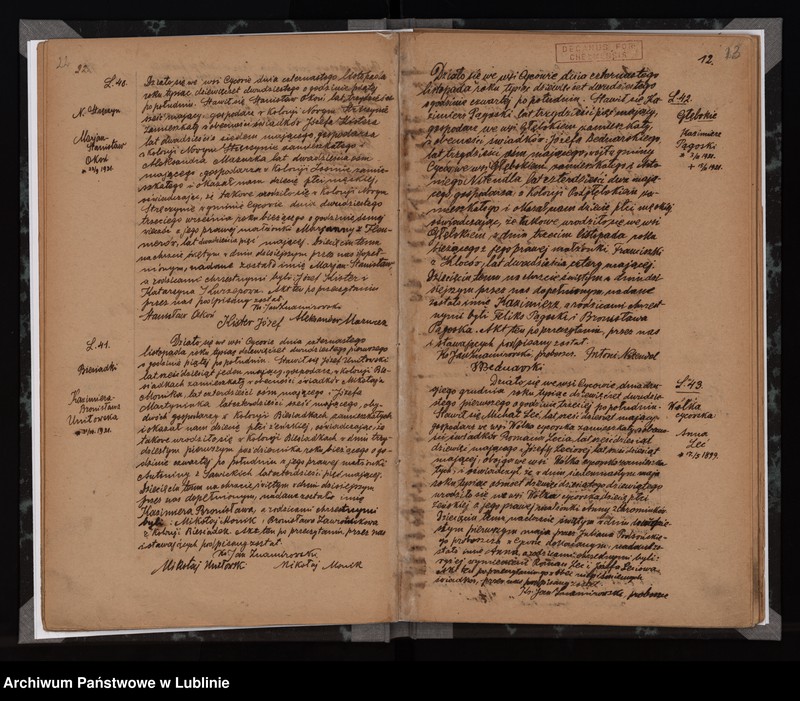 22 32.
L. 40.
N. Stręczyn
Marjan-
Stanisław
Okoń
Działo się we wsi Cycowie dnia czternastego listopada
roku tysiąc dziewięćset dwudziestego o godzinie piątej
po południu. Stawił się Stanisław Okoń, lat trzydzieści
sześć mający, gospodarz w Kolonji Nowym Stręczynie
zamieszkały w obecności świadków Józefa Kistera
lat dwudziestu siedem mającego, gospodarza
w Kolonji Nowym Stręczynie zamieszkałego i
Aleksandra Mazurka lat dwadzieścia osm
mającego, gospodarza w Kolonji
szkałego i okazał nam dziecię płci męskiej,
oświadczając, że takowe urodziło się w Kolonji Nowym
Stręczynie w gminie Cyców dnia dwudziestego
trzeciego września roku bieżącego o godzinie ósmej
z jego prawej małżonki Marjanny z
lat dwadzieścia pięć mającej. Dziecięciu temu
na chrzcie świętym w dniu dzisiejszym przez nas dopeł-
nionym, nadane zostało imię Marjan-Stanisław
a rodzicami chrzestnymi byli Józef Kister i
Katarzyna Akt ten po przeczytaniu
przez nas podpisany został.
Ks. Jan Znamirowski
Stanisław Okoń
Kister Józef Aleksander Mazurek
L. 41.
Biesiadki
Kazimiera-
Bronisława
Umitowska
Działo się we wsi Cycowie dnia czternastego
listopada roku tysiąc dziewięćset dwudziestego pierwszego
o godzinie piątej po południu. Stawił się Józef
lat sześćdziesiąt jeden mający, gospodarz w Kolonji Bie-
siadkach zamieszkały w obecności świadków Mikołaja
Mońka, lat czterdzieści osm mającego i Józefa
Martyniuka lat czterdzieści sześć mającego, oby-
dwóch gospodarzy w Kolonji Biesiadkach zamieszkałych
i okazał nam dziecię płci żeńskiej, oświadczając, że
takowe urodziło się w Kolonji Biesiadkach w dniu trzy-
dziestym pierwszym października roku bieżącego o go-
dzinie czwartej po południu z jego prawej małżonki
Antoniny z Sawickich lat czterdzieści pięć mającej.
Dziecięciu temu na chrzcie świętym w dniu dzisiejszym
przez nas dopełnionym, nadane zostało imię
Kazimiera Bronisława, a rodzicami chrzestnymi
byli: Mikołaj Moniek i Bronisława
z Kolonji Biesiadek. Akt ten po przeczytaniu, przez nas
i stawających podpisany został.
Ks. Jan Znamirowski
Mikołaj Mikołaj Moniek
12. 12
L. 42.
Głębokie
Kazimierz
Pagoski
Działo się we wsi Cycowie dnia czternastego
listopada roku tysiąc dziewięćset dwudziestego
o godzinie czwartej po południu. Stawił się Ka-
zimierz Pagoski, lat trzydzieści pięć mający,
gospodarz we wsi Głębokiem zamieszkały,
w obecności świadków: Józefa Bednarskiego,
lat trzydzieści osm mającego,
Cycowie we wsi Głębokiem, zamieszkałego i Anto-
niego lat czterdzieści dwa mają-
cego gospodarza w Kolonji Podgłębokiem za-
mieszkałego i okazał nam dziecię płci męskiej
oświadczając, że takowe urodziło się we wsi
Głębokiem w dniu trzecim listopada roku
bieżącego z jego prawej małżonki Franciszki
z lat dwadzieścia cztery mającej.
Dziecięciu temu na chrzcie świętym w dniu dzi-
siejszym przez nas dopełnionym, nadane
zostało imię Kazimierz, a rodzicami chrzest-
nymi byli Feliks Pagoski i Bronisława
Pagoska. Akt ten po przeczytaniu, przez nas
i stawających podpisany został.
Ks. Jan Znamirowski, proboszcz. Antoni
J Bednarski
L. 43.
Wólka
cycowska
Anna
Lec
Działo się we wsi Cycowie, dnia dru-
giego grudnia roku tysiąc dziewięćset dwudzie-
stego pierwszego o godzinie trzeciej po południu.
Stawił się Michał Lec, lat sześćdziesiąt mający
gospodarz we wsi Wólce cycowskiej zamieszkały, w obecno-
ści świadków Romana Lecia, lat sześćdziesiąt
dziewięć mającego i Józefy Leciowej, lat sześćdziesiąt
mającej, obojga we wsi Wólka cycowska zamieszka-
łych, i oświadczył, że w dniu siedemnastym maja
roku tysiąc ośmset dziewięćdziesiątego dziewiątego
urodziło się we wsi Wólka cycowska dziecię płci
żeńskiej z jego prawej małżonki Anny z
Dziecięciu temu na chrzcie świętym w dniu dwudzie-
stym pierwszym maja przez Juljana
go proboszcza w Cycowie nadane zo-
stało imię Anna, a rodzicami chrzestnymi byli:
wyżej wymienieni Roman Lec i Józefa Leciowa.
Akt ten po przeczytaniu
świadków, przez nas podpisany został.
Ks. Jan Znamirowski, proboszcz
Archiwum Państwowe w Lublinie